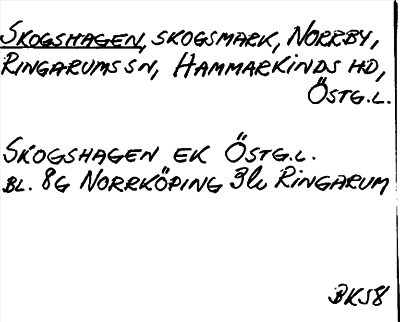 SKOGSHAGEN, SKOGSMARK, NORRBY,
RINGARUMS SN, HAMMARKINDS HD,
ÖSTG.L.
SKOGSHAGEN EK ÖSTG.L.
BL. 8G NORRKÖPING 3h RINGARUM
BKS8